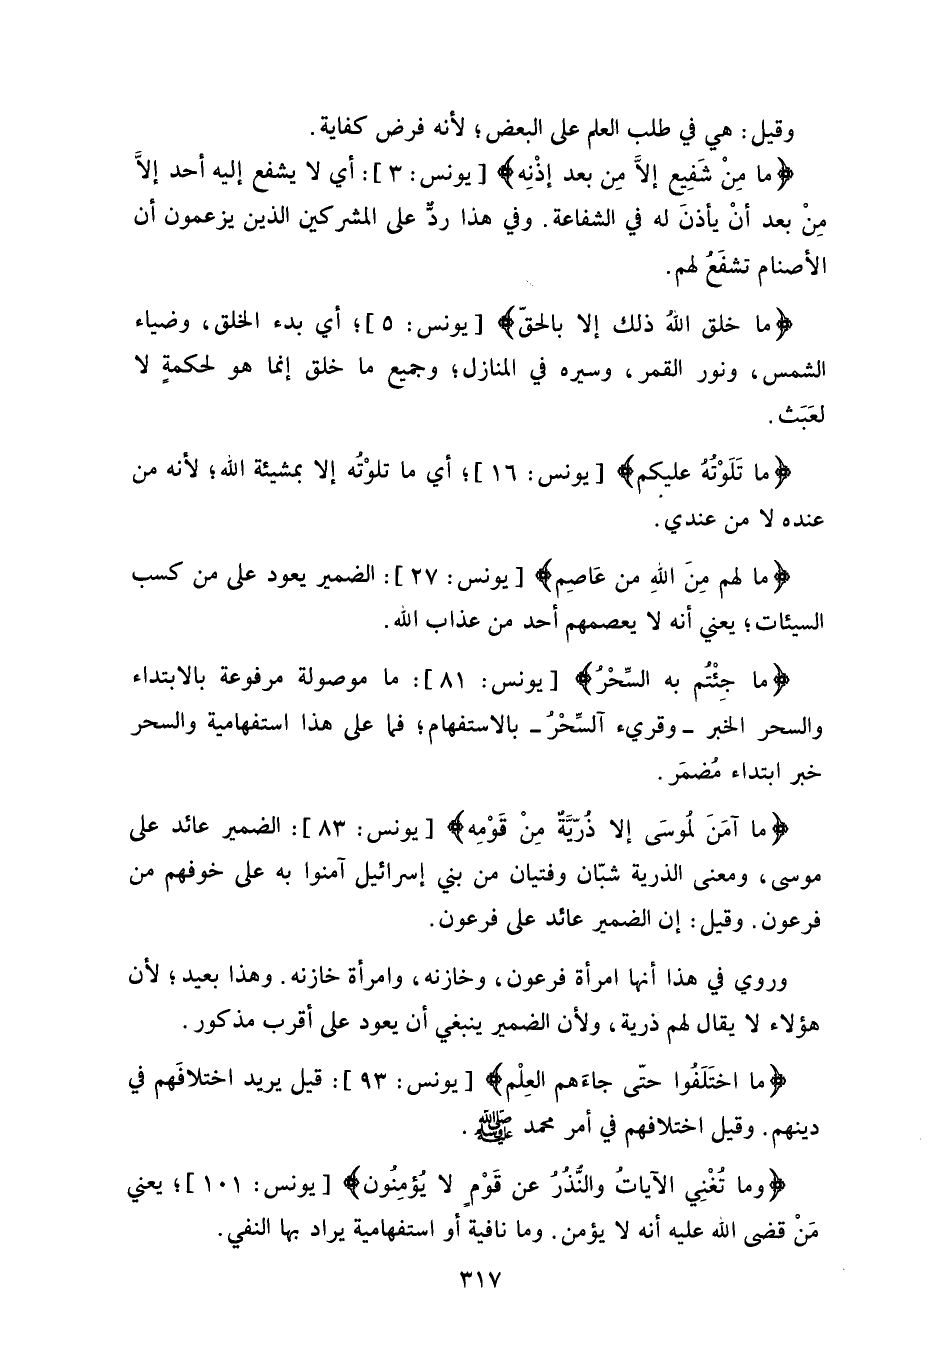 وقيل: هي في طلب العلم على البعض؛ لأنه فرض كفاية.
﴿ما مِنْ شَفِيعٍ إلاَّ مِن بعد إذْنِه﴾ [يونس: ٣]: أي لا يشفع إليه أحد إلاَّ
مِنْ بعد أنْ يأذنَ له في الشفاعة. وفي هذا ردٌّ على المشركين الذين يزعمون أن
الأصنام تشفَعُ لهم.
﴿ما خلق اللهُ ذلك إلا بالحقّ﴾ [يونس: ٥]؛ أي بدء الخلق، وضياء
الشمس، ونور القمر، وسيره في المنازل؛ وجميع ما خلق إنما هو لحكمةٍ لا
لعَبَث.
﴿ما تَلَوْتُهُ عليكم﴾ [يونس: ١٦]؛ أي ما تلوْتُه إلا بمشيئة الله؛ لأنه من
عنده لا من عندي.
﴿ما لهم مِنَ اللهِ من عَاصِم﴾ [يونس: ٢٧]: الضمير يعود على من كسب
السيئات؛ يعني أنه لا يعصمهم أحد من عذاب الله.
﴿ما جِئْتُم به السِّحْرُ﴾ [يونس: ٨١]: ما موصولة مرفوعة بالابتداء
والسحر الخبر ـ وقريء آلسِّحْرُ ـ بالاستفهام؛ فما على هذا استفهامية والسحر
خبر ابتداء مُضمَر.
﴿ما آمَنَ لمُوسَى إلا ذُرّيَّةٌ مِنْ قَوْمِه﴾ [يونس: ٨٣]: الضمير عائد على
موسى، ومعنى الذرية شبّان وفتيان من بني إسرائيل آمنوا به على خوفهم من
فرعون. وقيل: إن الضمير عائد على فرعون.
وروي في هذا أنها امرأة فرعون، وخازنه، وامرأة خازنه. وهذا بعيد؛ لأن
هؤلاء لا يقال لهم ذرية، ولأن الضمير ينبغي أن يعود على أقرب مذكور.
﴿ما اختَلَفُوا حتّى جاءَهم العِلْم﴾ [يونس: ٩٣]: قيل يريد اختلافَهم في
دينهم. وقيل اختلافهم في أمر محمد ﷺ.
﴿وما تُغْنِي الآياتُ والنُّذُرُ عن قَوْمٍ لا يُؤمِنُون﴾ [يونس: ١٠١]؛ يعني
مَنْ قضى الله عليه أنه لا يؤمن. وما نافية أو استفهامية يراد بها النفي.
٣١٧